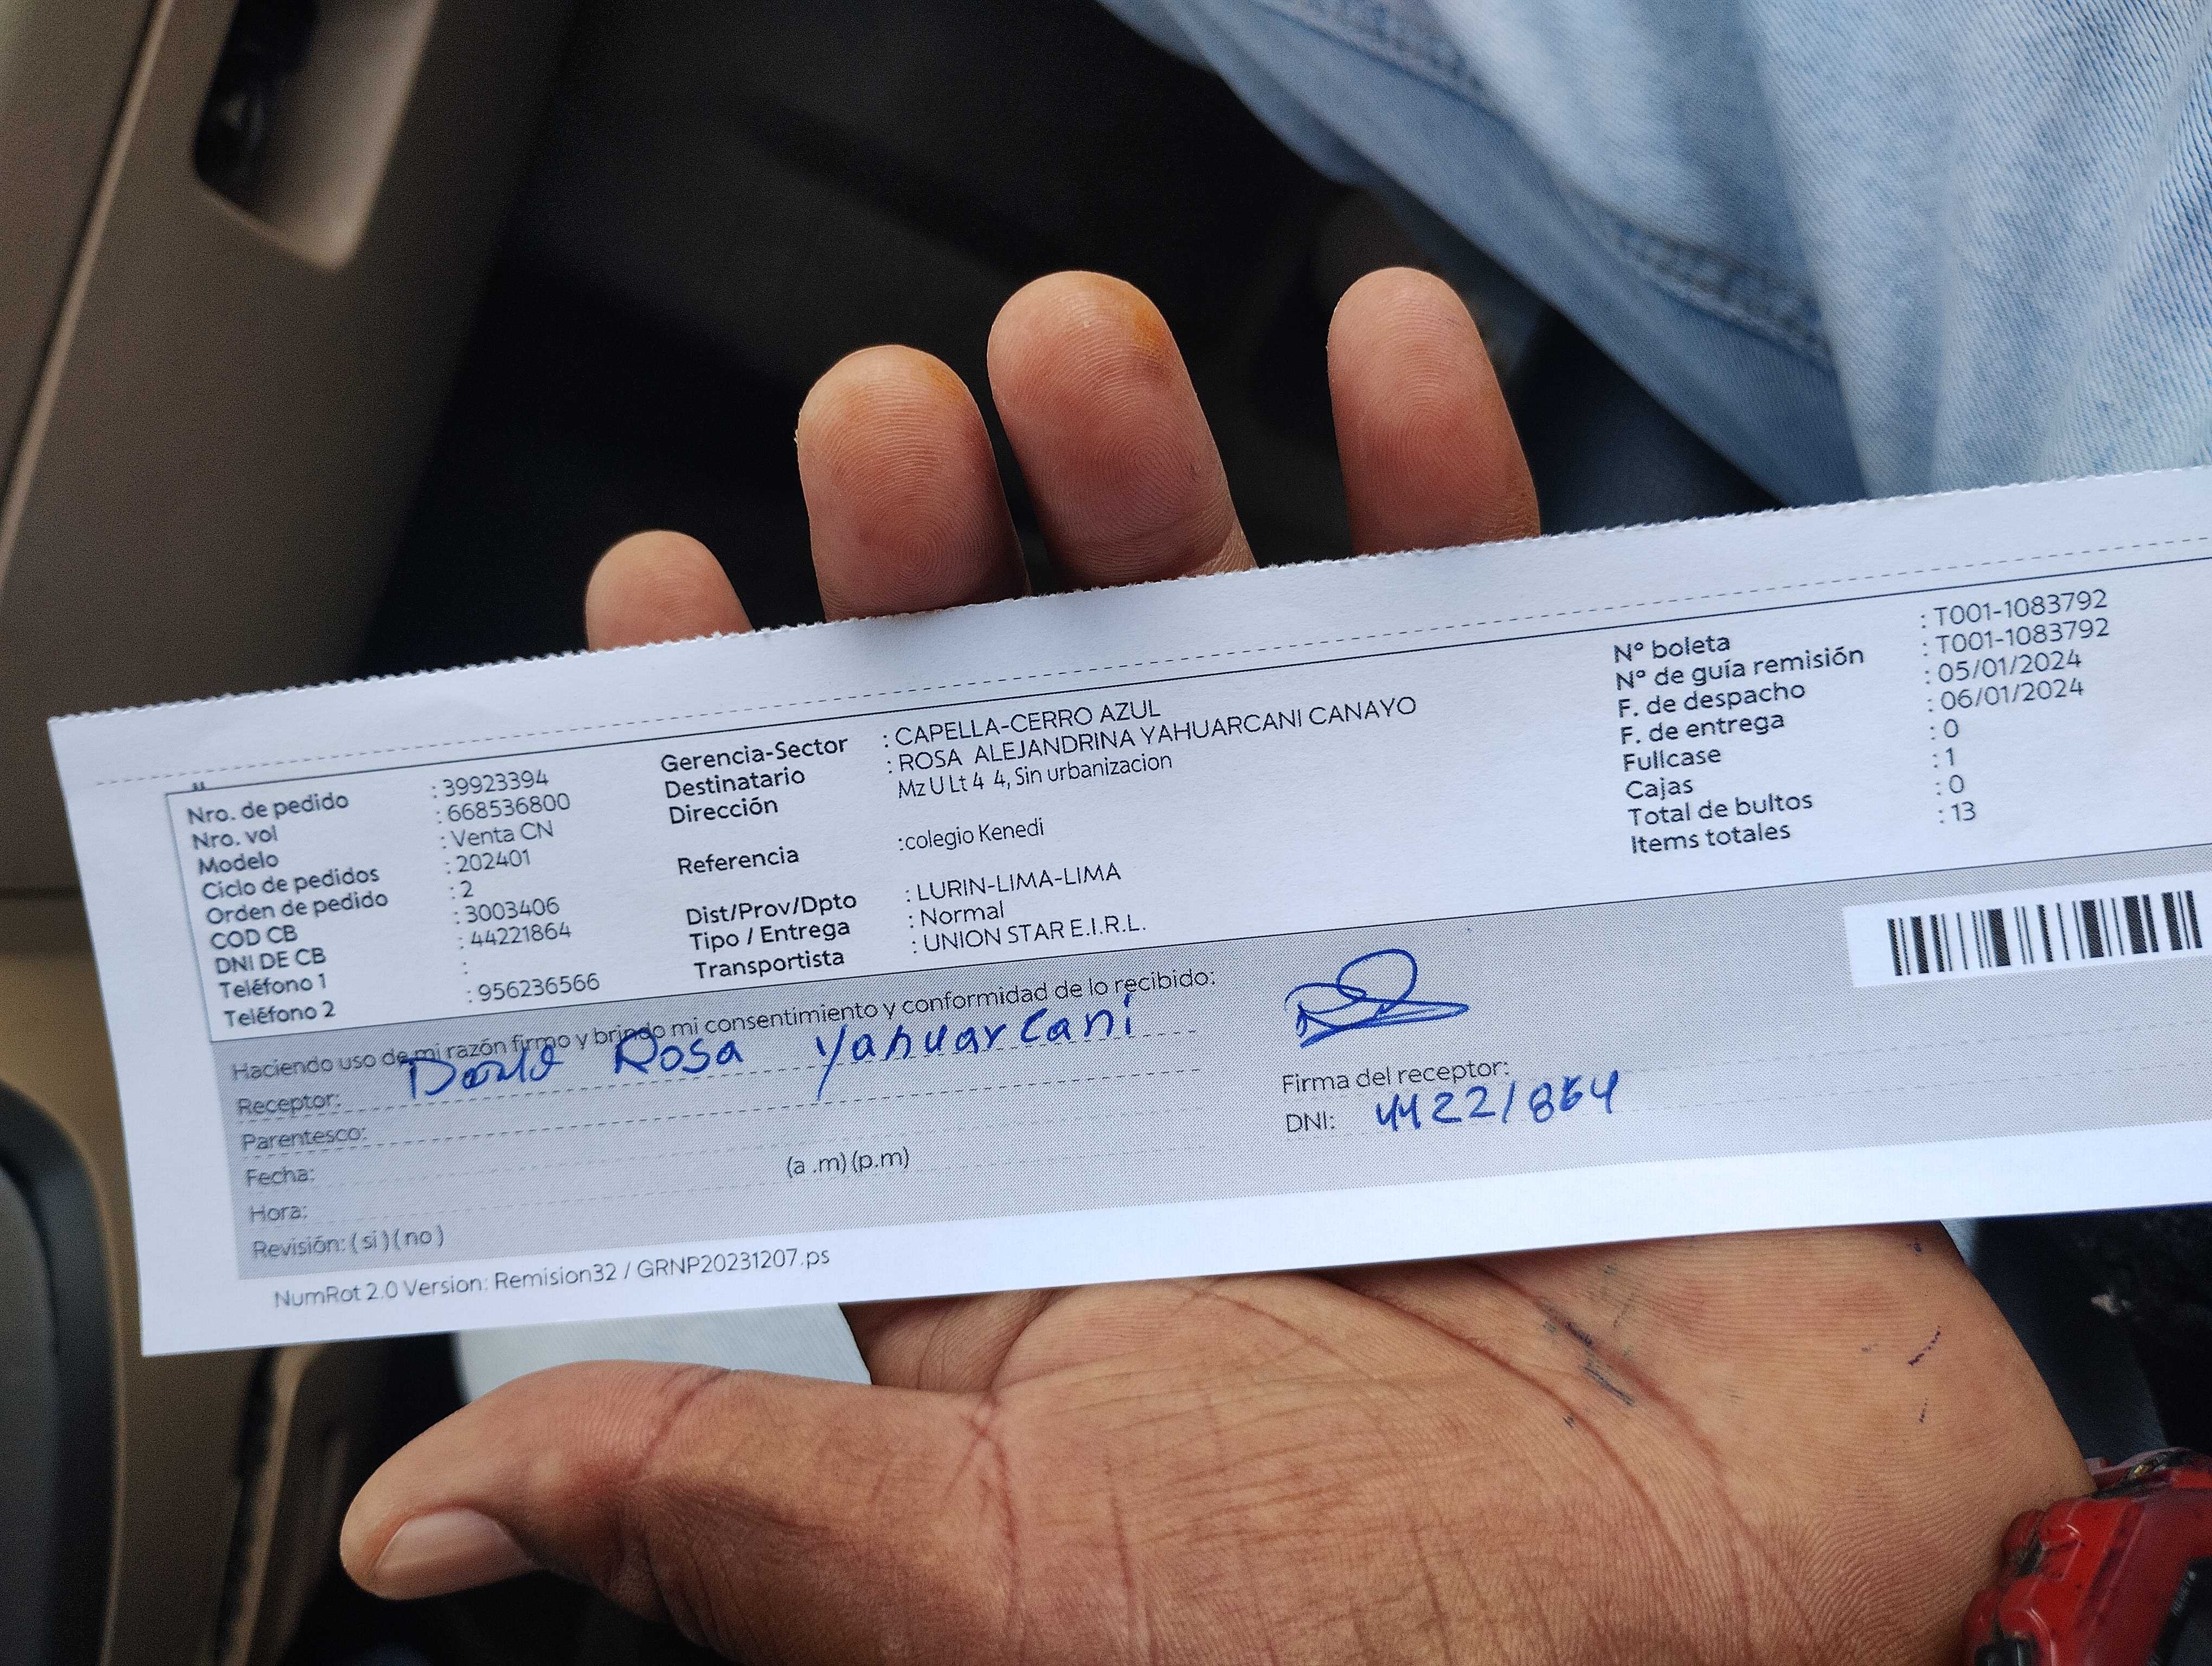 Nro. de pedido : 39923394
Nro. vol : 668536800
Modelo : Venta CN
Ciclo de pedidos : 202401
Orden de pedido : 2
COD CB : 3003406
DNI DE CB : 44221864
Teléfono 1 :
Teléfono 2 : 956236566
Gerencia-Sector : CAPELLA-CERRO AZUL
Destinatario : ROSA ALEJANDRINA YAHUARCANI CANAYO
Dirección Mz U Lt 4 4, Sin urbanizacion
Referencia :colegio Kenedi
Dist/Prov/Dpto : LURIN-LIMA-LIMA
Tipo / Entrega : Normal
Transportista : UNION STAR E.I.R.L.
N° boleta : T001-1083792
N° de guía remisión : T001-1083792
F. de despacho : 05/01/2024
F. de entrega : 06/01/2024
Fullcase : 0
Cajas : 1
Total de bultos : 0
Items totales : 13
Haciendo uso de mi razón firmo y brindo mi consentimiento y conformidad de lo recibido:
Receptor: Rosa Yahuarcani
Parentesco:
Fecha:
Hora: (a .m) (p.m)
Revisión: ( si ) ( no )
Firma del receptor:
DNI: 44221864
NumRot 2.0 Version: Remision32 / GRNP20231207.ps